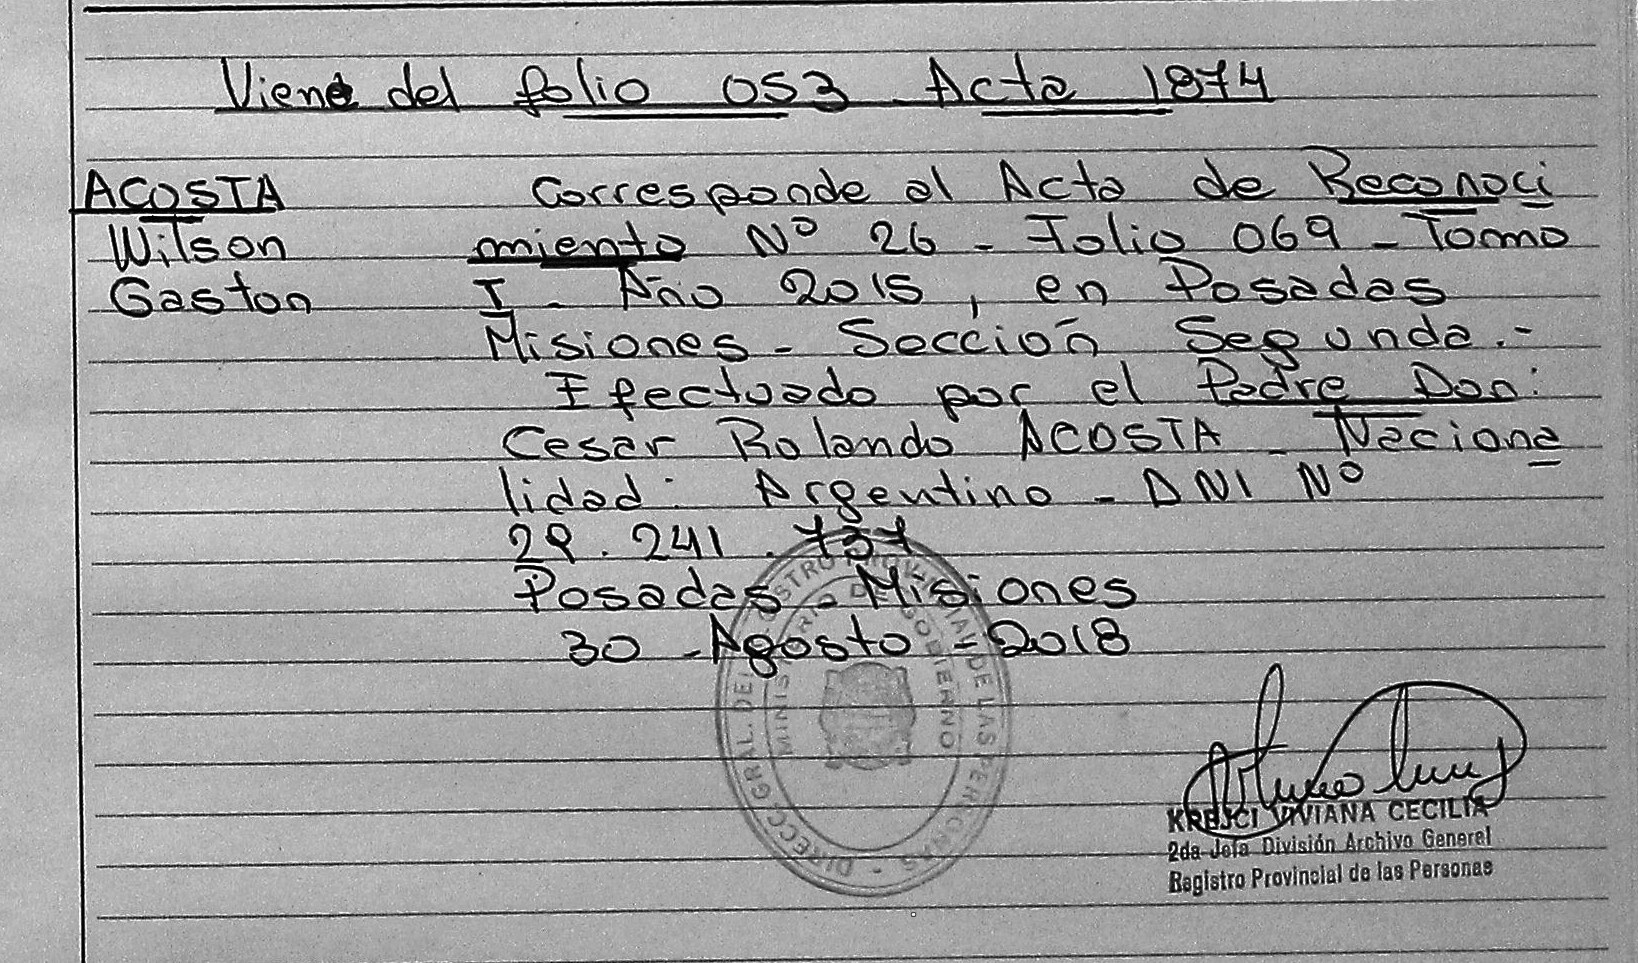 Viene del folio 053 - Acta 1874
ACOSTA
Wilson
Gaston
Corresponde al Acta de Reconoci
miento Nº 26 - Folio 069 - Tomo
I - Año 2015, en Posadas
Misiones - Sección Segunda.-
Efectuado por el Padre Don:
Cesar Rolando ACOSTA - Naciona
lidad: Argentino - DNI Nº
29.241.737
Posadas - Misiones
30 - Agosto - 2018
DIRECC. GRAL. DEL REGISTRO PROVINCIAL DE LAS PERSONAS -
MINISTERIO DE GOBIERNO
KREJCI VIVIANA CECILIA
2da Jefa División Archivo General
Registro Provincial de las Personas